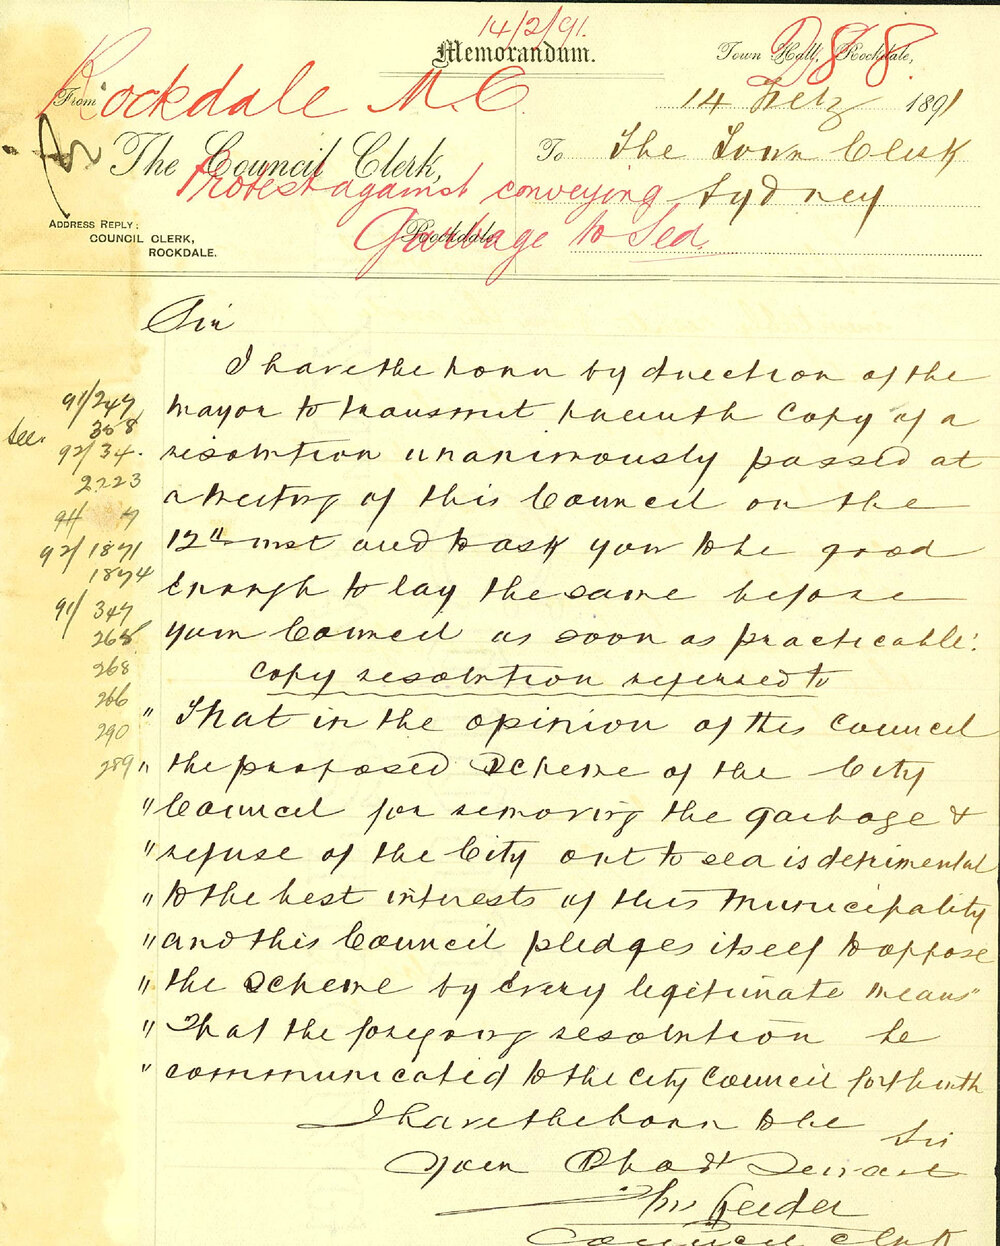 14/2/91.
Memorandum.
Town Hall, Rockdale,
D88.
From
Rockdale M. C.
14 Feby 1891
The Council Clerk,
To The Town Clerk
Protest against conveying
Sydney
Rockdale
Garbage to Sea.
ADDRESS REPLY:
COUNCIL CLERK,
ROCKDALE.
Sir
I have the honor by direction of the
91/247
mayor to transmit herewith copy of a
See 358
92/34.
resolution unanimously passed at
2223
a Meeting of this Council on the
94 7
92/1871
12th inst and to ask you to be good
1874
enough to lay the same before
91/347
268
your Council as soon as practicable:
268
copy resolution referred to
266
290
" That in the opinion of this Council
289
" the proposed Scheme of the City
" Council for removing the garbage &
" refuse of the City out to sea is detrimental
" to the best interests of this Municipality
" and this Council pledges itself to oppose
" the Scheme by every legitimate means"
" That the foregoing resolution be
" communicated to the City Council forthwith
I have the honor to be
Sir
Your Obedt Servant
Leeder
Council Clerk